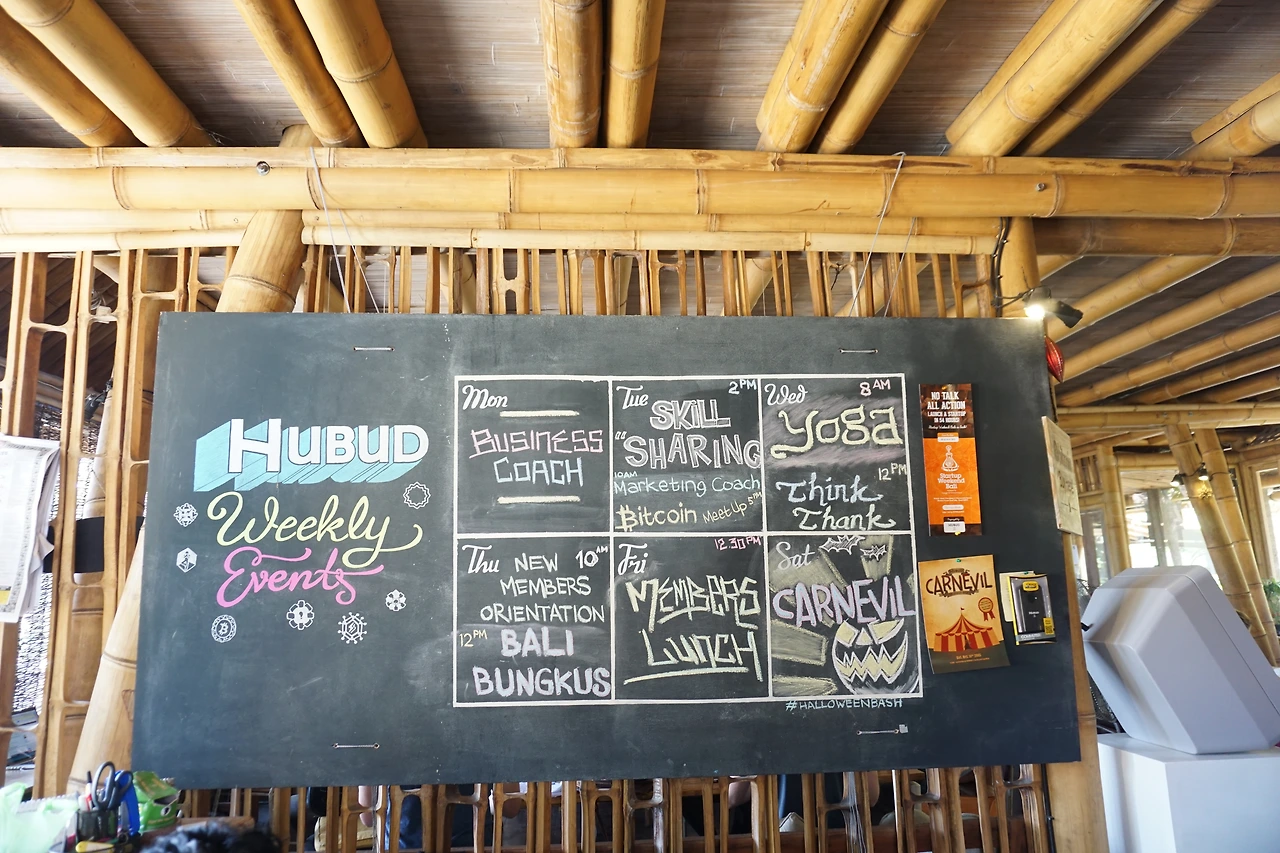 HUBUD
Weekly
Events
Mon
BUSINESS
COACH
Tue
2PM
SKILL
"SHARING
10AM
Marketing Coach
Bitcoin Meet Up 5PM
Wed
8 AM
Yoga
12PM
Think
Thank
Thu NEW 10AM
MEMBERS
ORIENTATION
12PM BALI
BUNGKUS
Fri
12.30 PM
MEMBERS
LUNCH
Sat
CARNEVIL
#HALLOWEENBASH
NO TALK
ALL ACTION
LAUNCH A STARTUP
IN 54 HOURS
Startup
Weekend
Bali
CARNEVIL